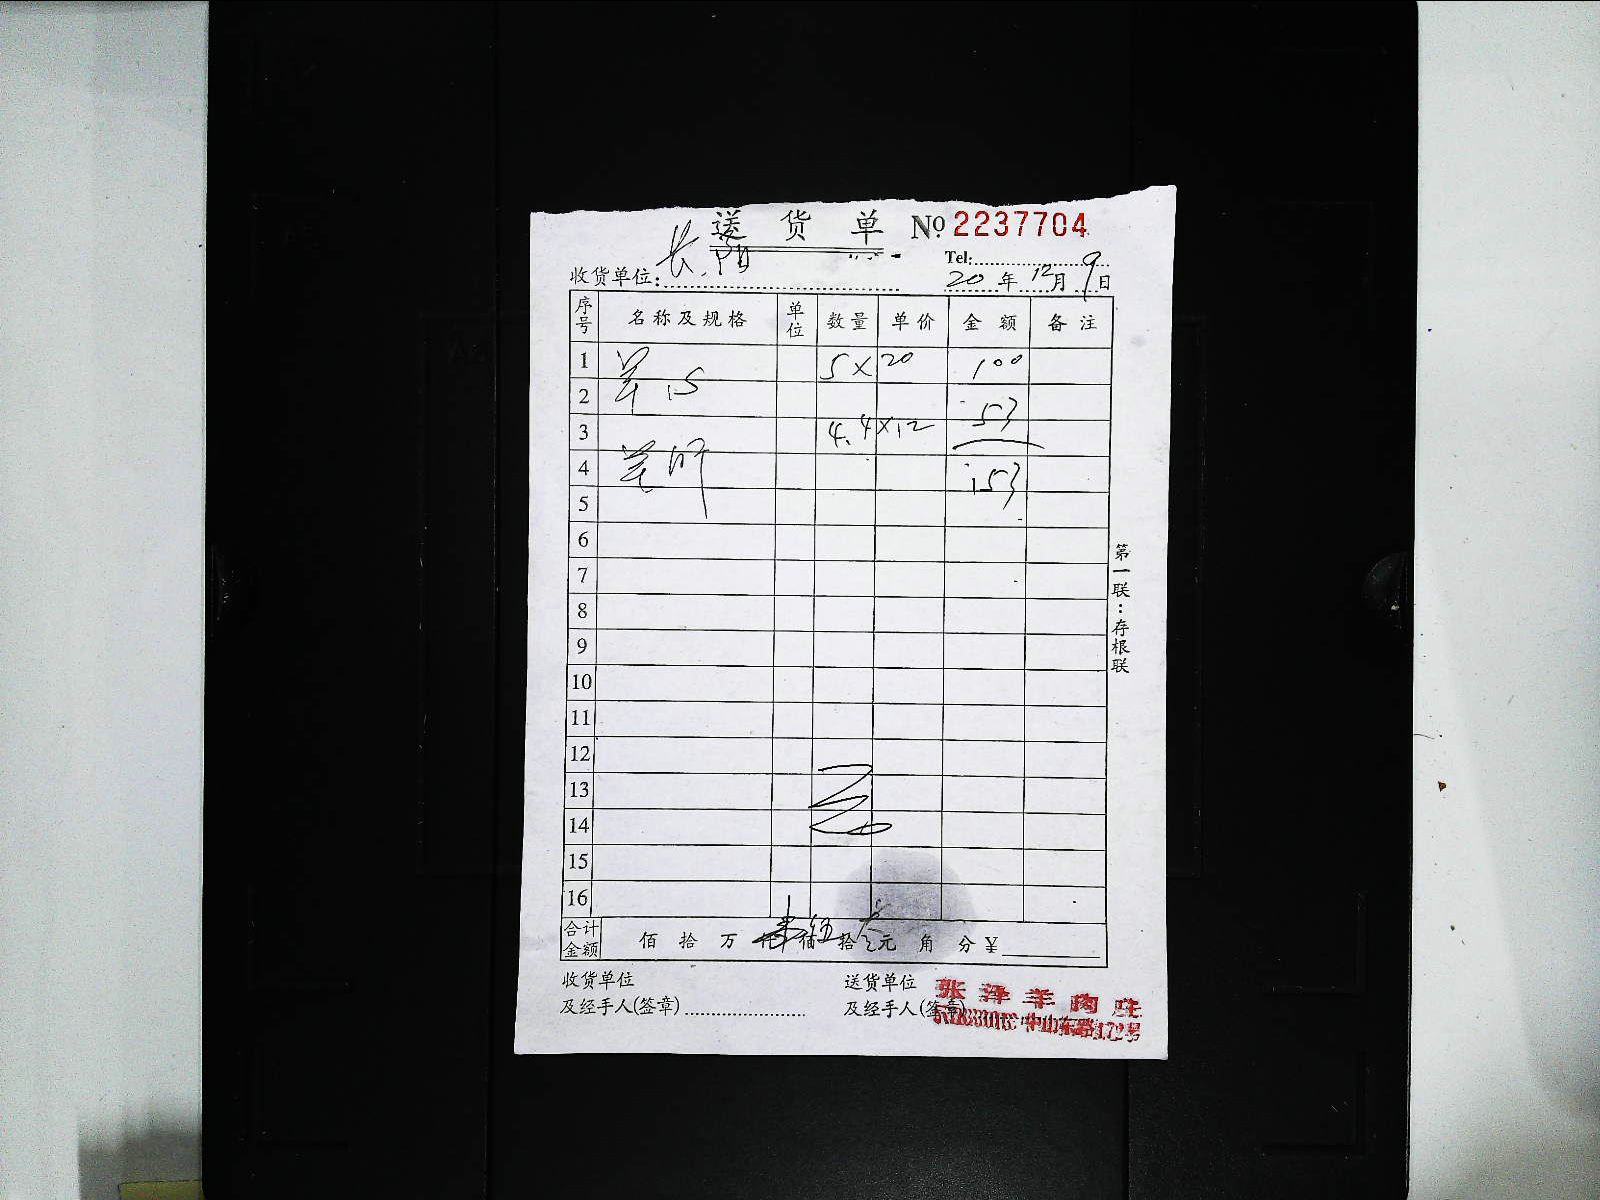 送 货 单 No 2237704
Tel:
收货单位: 长阳 20 年 12 月 9 日
序号 名称及规格 单位 数量 单价 金额 备注
1 羊心 5×20 100
2 53
3 4.4×12
4 羊肝 153
5
6
7
8
9
10
11
12
13
14
15
16
第一联:存根联
合计金额 佰 拾 万 仟 佰 伍 拾 元 角 分 ¥
收货单位 送货单位
及经手人(签章) 及经手人(签章)
张泽羊肉庄
中山东路172号